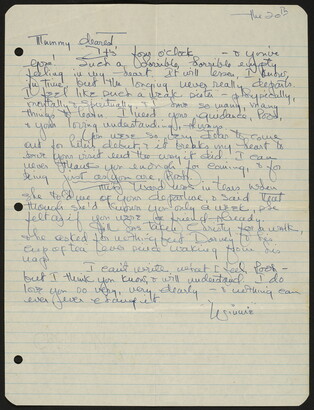 Mummy dearest
It's four o'clock — & you've
gone! Such a horrible, horrible empty
feeling in my heart. It will lessen, I know,
in time, but the longing never really departs.
I feel like such a weak data — physically,
mentally & spiritually, & have so many, many
things to learn. I need your guidance, Pooh,
& your loving understanding, always.
You were so very dear to come
out for debut, & it breaks my heart to
your visit end the way it did. I can
never thank you enough for coming, & for
being just as you are, Pooh.
Miss Ward was in tears when
she told me of your departure, & said that
though she'd known you only a week, she
felt as if you were her friend already.
Sue has taken Christy for a walk.
She asked for nothing but Danny & her
cup of tea ever since waking from her
nap.
I can't write what I feel, Pooh —
but I think you know, & will understand. I do
love you so very, very dearly — & nothing can
ever, ever change it